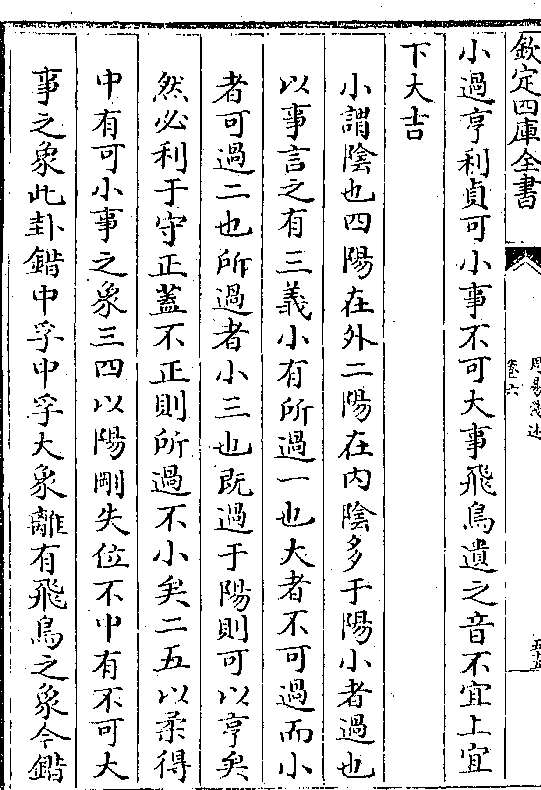 欽定四庫全書
卷六
小過亨利貞可小事不可大事飛鳥遺之音不宜上宜
下大吉
小謂陰也四陽在外二陽在内陰多于陽小者過也
以事言之有三義小有所過一也大者不可過而小
者可過二也所過者小三也既過于陽則可以亨矣
然必利于守正蓋不正則所過不小矣二五以柔得
中有可小事之象三四以陽剛失位不中有不可大
事之象此卦錯中孚中孚大象離有飛鳥之象今錯